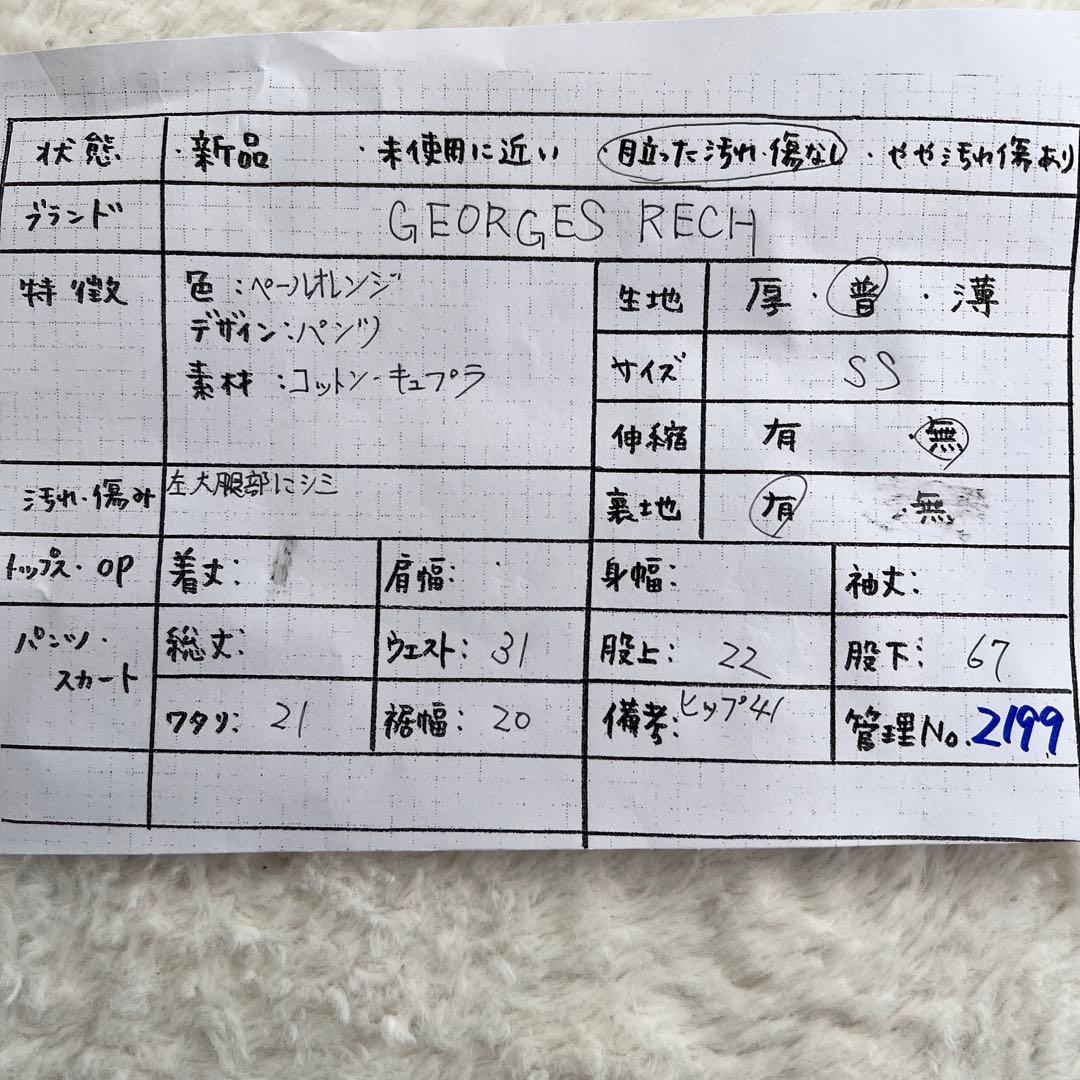 状態 ・新品 ・未使用に近い ・目立った汚れ・傷なし ・やや汚れ傷あり
ブランド GEORGES RECH
特徴 色：ペールオレンジ
デザイン：パンツ
素材：コットン・キュプラ
生地 厚・普・薄
サイズ SS
伸縮 有 ・無
汚れ・傷み 左大腿部にシミ
裏地 有 ・無
トップス・OP 着丈： 肩幅： 身幅： 袖丈：
パンツ・スカート 総丈： ウエスト：31 股上：22 股下：67
ワタリ：21 裾幅：20 備考：ヒップ41 管理No.2199